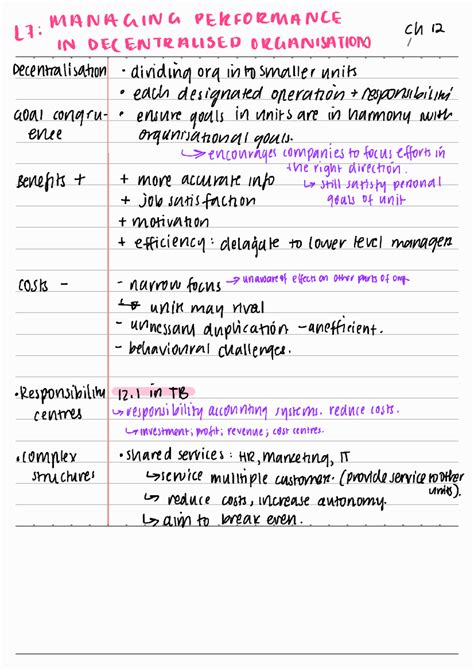 L7: MANAGING PERFORMANCE
IN DECENTRALISED ORGANISATION
Ch 12
Decentralisation • dividing org into smaller units
• each designated operation + responsibilití
Goal congru-ence • ensure goals in units are in harmony with
organisational goals.
↳ encourages companies to focus efforts in
the right direction.
↳ still satisfy personal
goals of unit
Benefits + + more accurate info
+ job satisfaction
+ motivation
+ efficiency: delagate to lower level managers
Costs - - narrow focus → unaware of effects on other parts of org.
↳ units may rival
- unnessary duplication - inefficient.
- behavioural challenges.
• Responsibility 12.1 in TB
centres ↳ responsibility accounting systems. reduce costs.
↳ investment; profit; revenue; cost centres.
• Complex • shared services: HR, marketing, IT
structures ↳ service multiple customers. (provide service to other
units).
↳ reduce costs, increase autonomy.
↳ aim to break even.